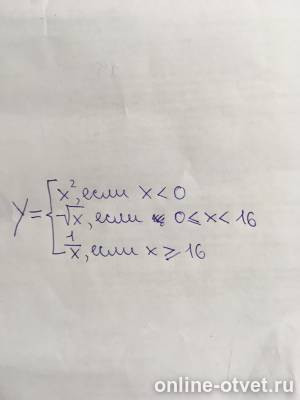 x², если x < 0
y = { -√x, если 0 ≤ x < 16
-1/x, если x ⩾ 16
online-otvet.ru